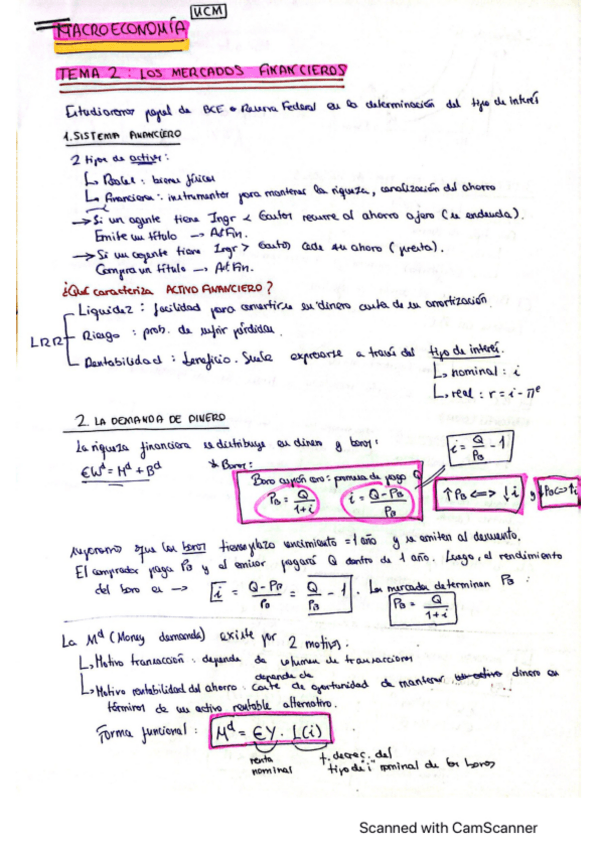 UCM
MACROECONOMÍA
TEMA 2: LOS MERCADOS FINANCIEROS
Estudiaremos papel de BCE o Reserva Federal en la determinación del tipo de interés
1. SISTEMA FINANCIERO
2 tipos de activos:
↳ Reales: bienes físicos
↳ Financieros: instrumentos para mantener la riqueza, canalización del ahorro
→ Si un agente tiene Ingr < Gastos recurre al ahorro ajeno (se endeuda).
Emite un título → Act. Fin.
→ Si un agente tiene Ingr > Gastos cede su ahorro (presta).
Compra un título → Act. Fin.
¿Qué caracteriza ACTIVO FINANCIERO?
Liquidez: facilidad para convertirse en dinero antes de su amortización.
LRR Riesgo: prob. de sufrir pérdidas.
Rentabilidad: beneficio. Suele expresarse a través del tipo de interés.
↳ nominal: i
↳ real: r = i - πᵉ
2. LA DEMANDA DE DINERO
La riqueza financiera se distribuye en dinero y bonos:
€Wᵈ = Mᵈ + Bᵈ
* Bonos:
i = Q/P_B - 1
Bono cupón cero: promesa de pago Q
P_B = Q/(1+i) i = (Q - P_B)/P_B
↑P_B <=> ↓i y ↓P_B <=> ↑i
que los bonos tienen plazo vencimiento = 1 año y se emiten al descuento.
El comprador paga P_B y el emisor pagará Q dentro de 1 año. Luego, el rendimiento
del bono es → i = (Q - P_B)/P_B = Q/P_B - 1. Los mercados determinan P_B:
P_B = Q/(1+i)
La Mᵈ (Money demanda) existe por 2 motivos:
↳ Motivo transacción: depende de volumen de transacciones
↳ Motivo rentabilidad del ahorro: depende de coste de oportunidad de mantener dinero en
términos de un activo rentable alternativo.
Forma funcional: Mᵈ = €Y · L(i)
renta nominal
f. decrec. del tipo de "i" nominal de los bonos
Scanned with CamScanner